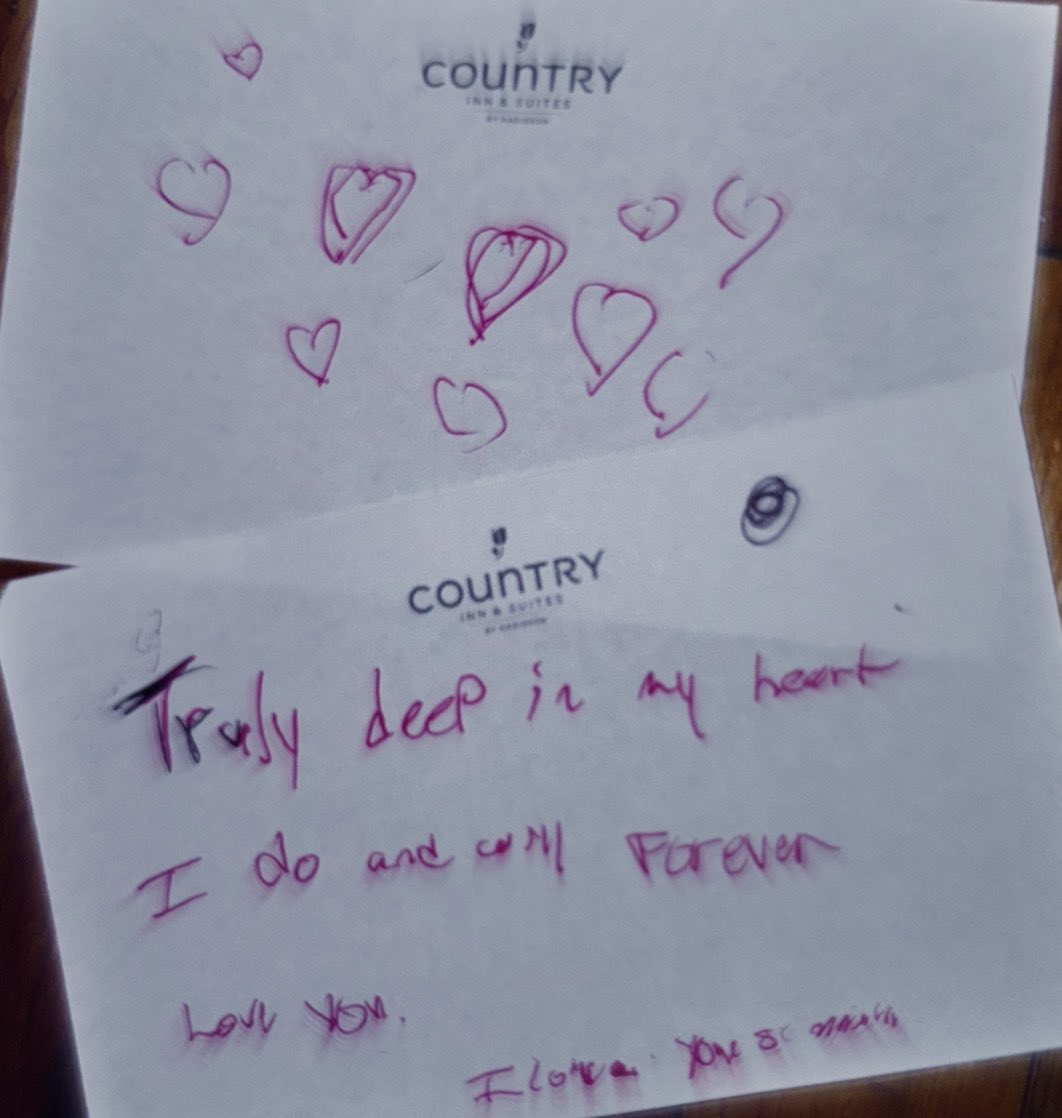 COUNTRY
INN & SUITES
BY RADISSON
COUNTRY
INN & SUITES
BY RADISSON
Truly deep in my heart
I do and will Forever
Love you.
I love you so much